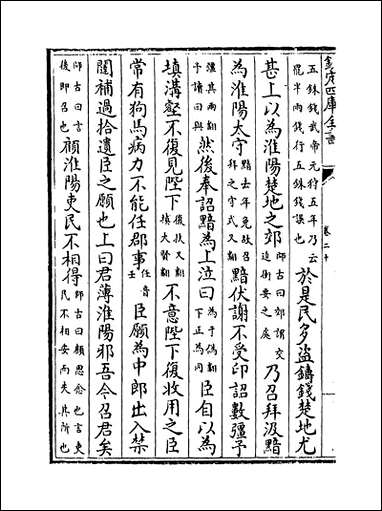 欽定四庫全書
卷二十
五銖錢武帝元狩五年乃云罷半兩錢行五銖錢誤也於是民多盜鑄錢楚地尤
甚上以為淮陽楚地之郊師古曰郊謂交道衝要之處乃召拜汲黯
為淮陽太守黯去年免故召拜之守式又翻黯伏謝不受印詔數彊予
彊其兩翻予讀曰與然後奉詔黯為上泣曰為于偽翻下正為同臣自以為
填溝壑不復見陛下復扶又翻填大賢翻不意陛下復收用之臣
常有狗馬病力不能任郡事任音壬臣願為中郎出入禁
闥補過拾遺臣之願也上曰君薄淮陽邪吾今召君矣
師古曰言後即召也顧淮陽吏民不相得師古曰顧思念也言吏民不相安而失其所也